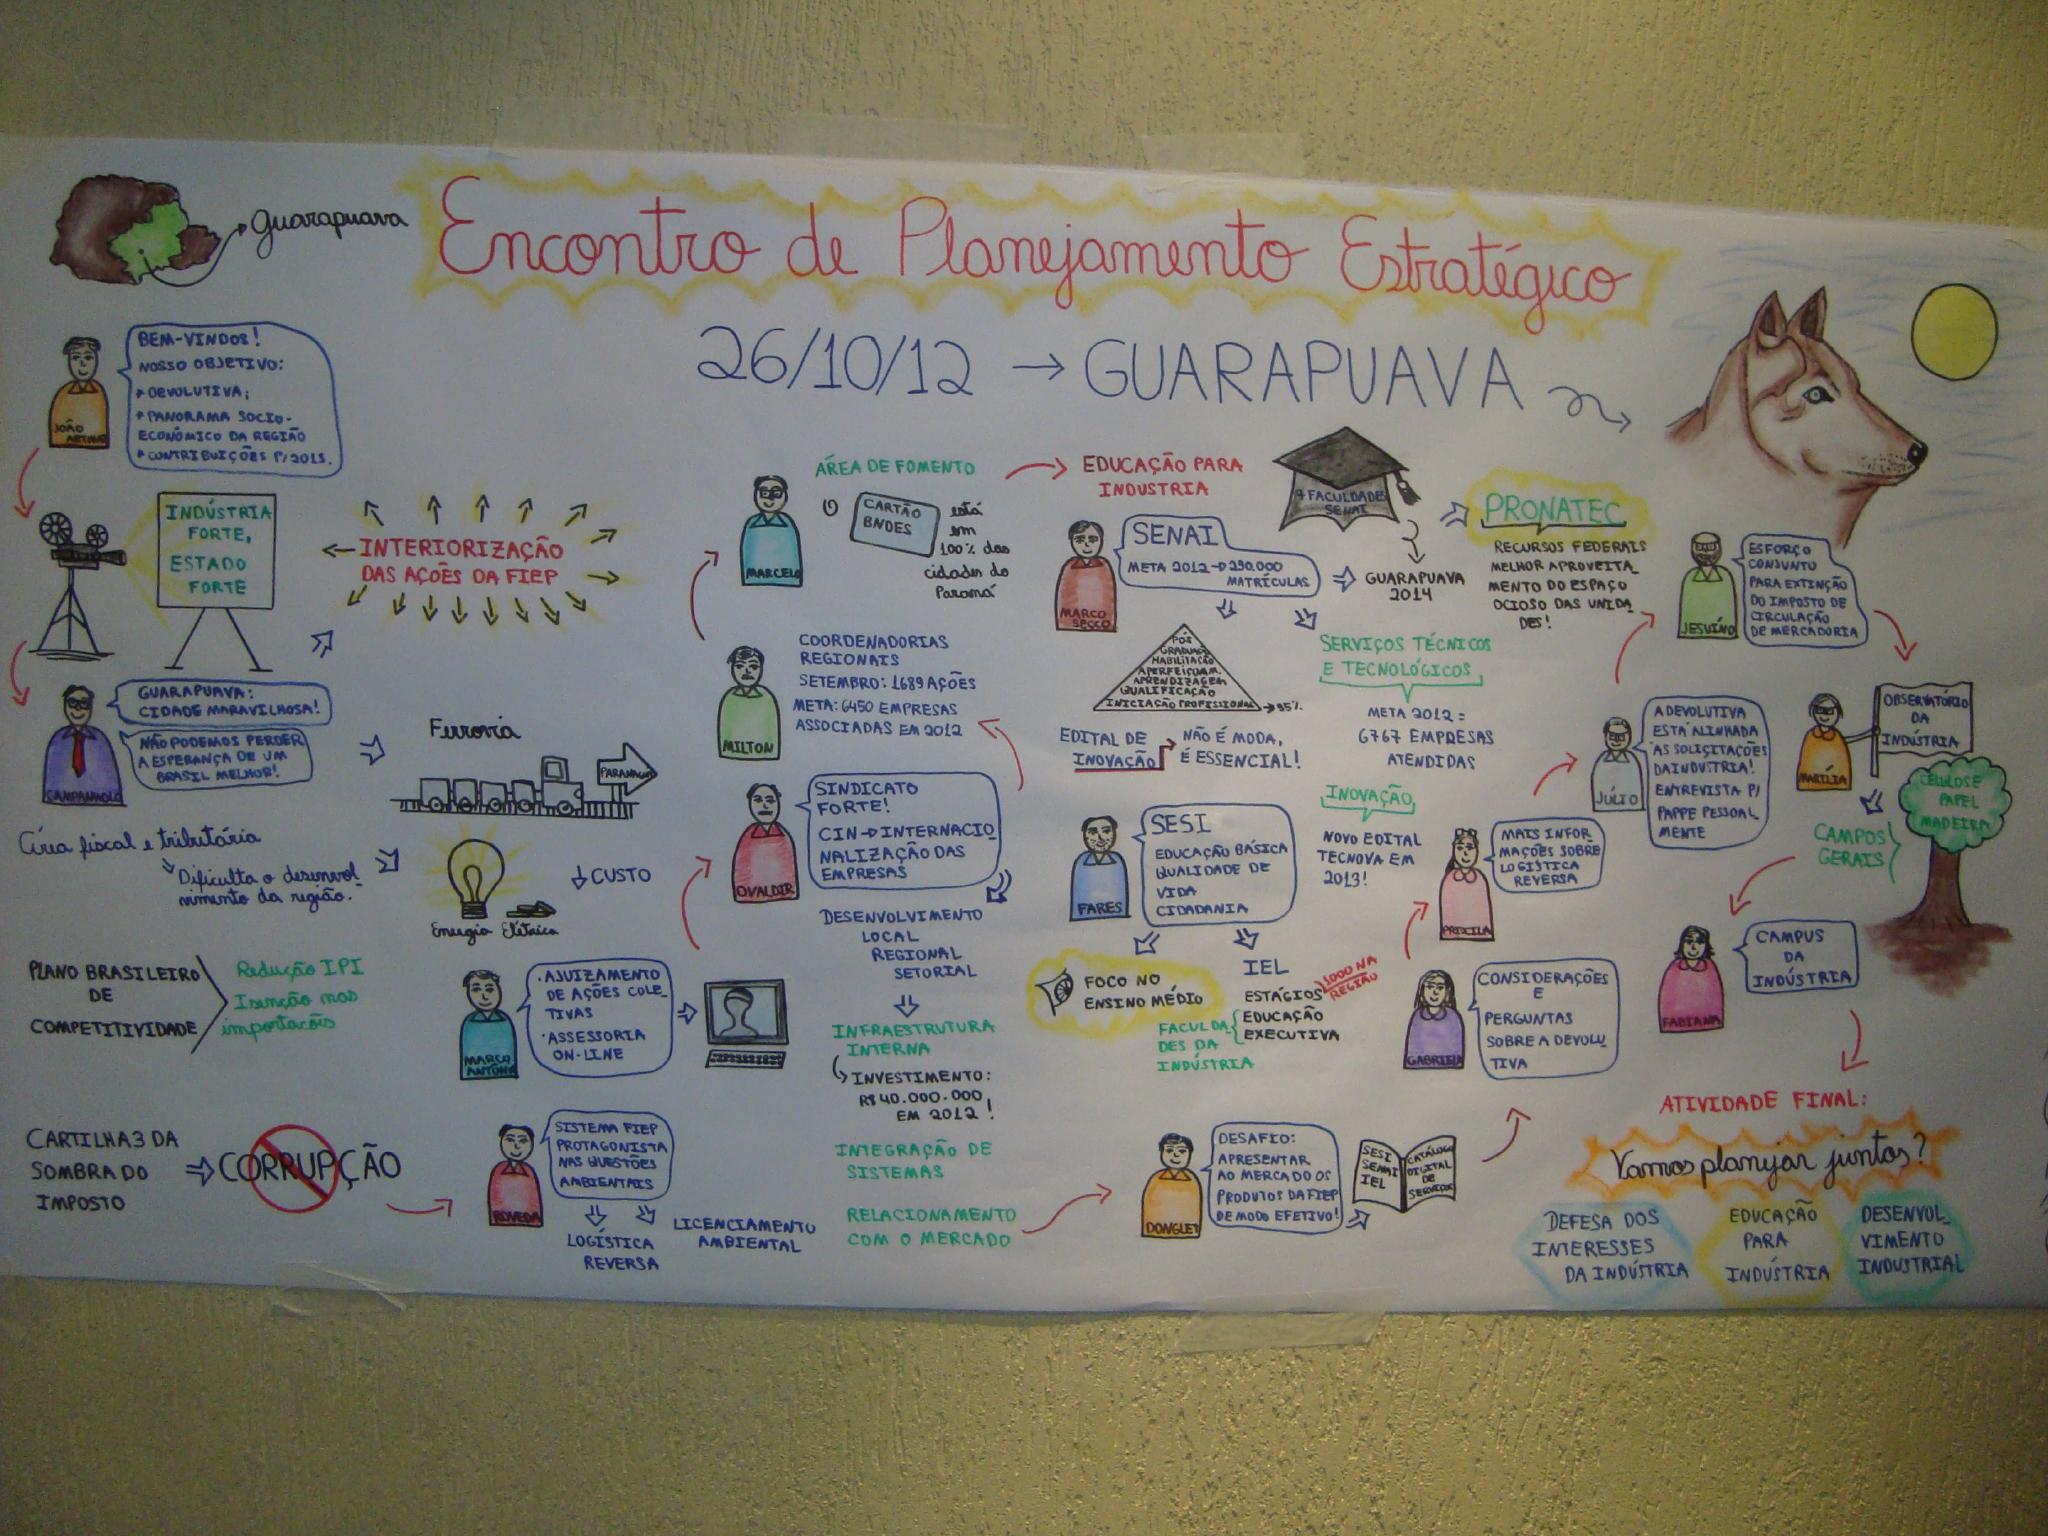 Guarapuava
Encontro de Planejamento Estratégico
26/10/12 → GUARAPUAVA
BEM-VINDOS!
NOSSO OBJETIVO:
* DEVOLUTIVA;
* PANORAMA SOCIO-
ECONÔMICO DA REGIÃO
* CONTRIBUIÇÕES P/2013.
JOÃO
INDÚSTRIA
FORTE,
ESTADO
FORTE
INTERIORIZAÇÃO
DAS AÇÕES DA FIEP
GUARAPUAVA:
CIDADE MARAVILHOSA!
NÃO PODEMOS PERDER
A ESPERANÇA DE UM
BRASIL MELHOR!
CAMPANHOLO
Ferrovia
PARANAGUÁ
fiscal e tributária
Dificulta o desenvol-
vimento da região.
CUSTO
Energia Elétrica
PLANO BRASILEIRO
DE
COMPETITIVIDADE
Redução IPI
Isenção nas
importacões
CARTILHA 3 DA
SOMBRA DO
IMPOSTO
CORRUPÇÃO
ROVEDA
SISTEMA FIEP
PROTAGONISTA
NAS QUESTÕES
AMBIENTAIS
LOGÍSTICA
REVERSA
LICENCIAMENTO
AMBIENTAL
MARCO
ANTÔNIO
· AJUIZAMENTO
DE AÇÕES COLE-
TIVAS
· ASSESSORIA
ON-LINE
OVALDIR
SINDICATO
FORTE!
CIN → INTERNACIO-
NALIZAÇÃO DAS
EMPRESAS
DESENVOLVIMENTO
LOCAL
REGIONAL
SETORIAL
INFRAESTRUTURA
INTERNA
INVESTIMENTO:
R$ 40.000.000
EM 2012!
INTEGRAÇÃO DE
SISTEMAS
RELACIONAMENTO
COM O MERCADO
MILTON
COORDENADORIAS
REGIONAIS
SETEMBRO: 1689 AÇÕES
META: 6450 EMPRESAS
ASSOCIADAS EM 2012
MARCELO
ÁREA DE FOMENTO
O
CARTÃO
BNDES
está
em
100% das
cidades do
Paraná
EDUCAÇÃO PARA
INDUSTRIA
MARCO
SECCO
SENAI
META 2012 → 290.000
MATRÍCULAS
7 FACULDADES
SENAI
GUARAPUAVA
2014
PRONATEC
RECURSOS FEDERAIS
MELHOR APROVEITA-
MENTO DO ESPAÇO
OCIOSO DAS UNIDA-
DES!
PÓS
GRADUAÇÃO
HABILITAÇÃO
APERFEIÇOAM.
APRENDIZAGEM
QUALIFICAÇÃO
INICIAÇÃO PROFISSIONAL → 95%
EDITAL DE
INOVAÇÃO
NÃO É MODA,
É ESSENCIAL!
SERVIÇOS TÉCNICOS
E TECNOLÓGICOS
META 2012 =
6767 EMPRESAS
ATENDIDAS
INOVAÇÃO
NOVO EDITAL
TECNOVA EM
2013!
FARES
SESI
EDUCAÇÃO BÁSICA
QUALIDADE DE
VIDA
CIDADANIA
FOCO NO
ENSINO MÉDIO
IEL
ESTÁGIOS
1000 NA
REGIÃO
EDUCAÇÃO
EXECUTIVA
FACULDA
DES DA
INDÚSTRIA
DONGLEY
DESAFIO:
APRESENTAR
AO MERCADO OS
PRODUTOS DA FIEP
DE MODO EFETIVO!
SESI
SENAI
IEL
CATÁLOGO
DIGITAL
DE
SERVIÇOS
GABRIELA
CONSIDERAÇÕES
E
PERGUNTAS
SOBRE A DEVOLU-
TIVA
PRISCILA
MAIS INFOR
MAÇÕES SOBRE
LOGÍSTICA
REVERSA
JÚLIO
A DEVOLUTIVA
ESTÁ ALINHADA
ÀS SOLICITAÇÕES
DA INDÚSTRIA!
ENTREVISTA P/
PAPPE PESSOAL
MENTE
JESUÍNO
ESFORÇO
CONJUNTO
PARA EXTINÇÃO
DO IMPOSTO DE
CIRCULAÇÃO
DE MERCADORIA
MARÍLIA
OBSERVATÓRIO
DA
INDÚSTRIA
CAMPOS
GERAIS
CELULOSE
PAPEL
MADEIRA
FABIANA
CAMPUS
DA
INDÚSTRIA
ATIVIDADE FINAL:
Vamos planejar juntos?
DEFESA DOS
INTERESSES
DA INDÚSTRIA
EDUCAÇÃO
PARA
INDÚSTRIA
DESENVOL-
VIMENTO
INDUSTRIAL